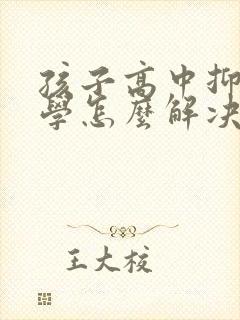 孩子高中抑
學怎麼解决
王大核